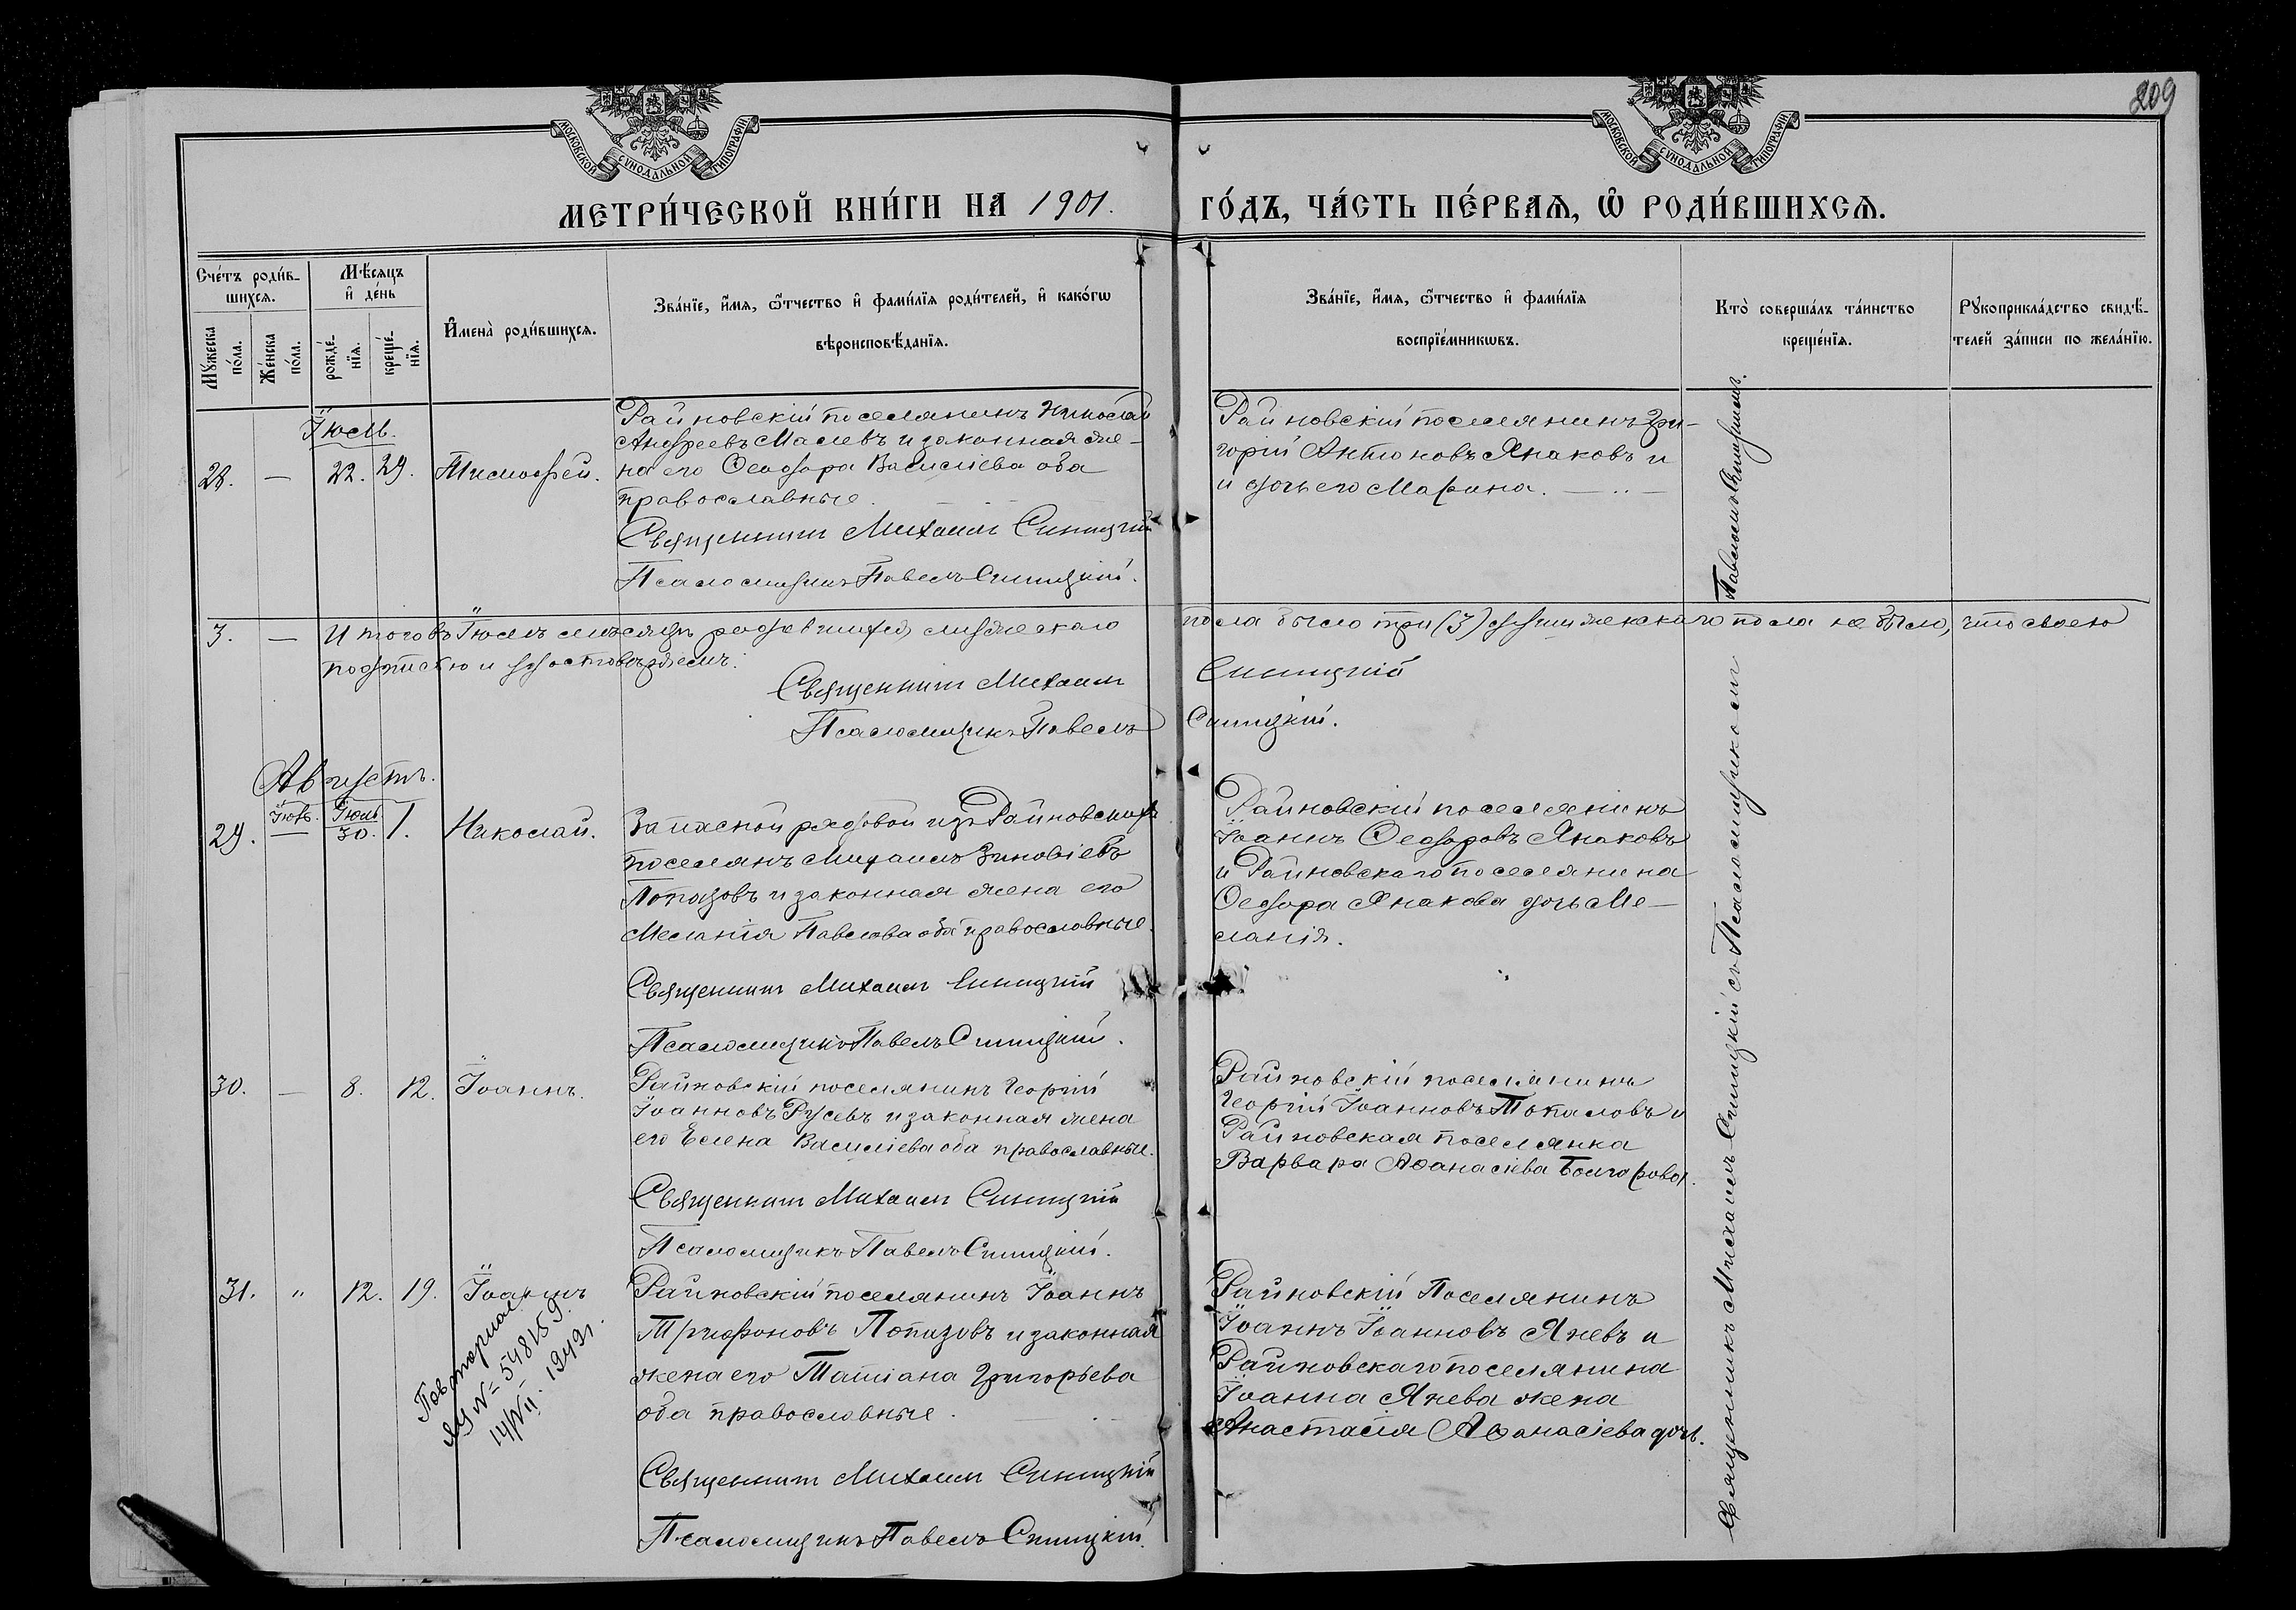 209
МОСКОВСКОЙ СѴНОДАЛЬНОЙ ТИПОГРАФІИ
МОСКОВСКОЙ СѴНОДАЛЬНОЙ ТИПОГРАФІИ
МЕТРИ́ЧЕСКОЙ КНИ́ГИ НА 1901. ГО́ДЪ, ЧА́СТЬ ПЕ́РВАѦ, Ѡ҆ РОДИ́ВШИХСѦ.
Сче́тъ роди́в-
шихсѧ.
Мꙋ́жеска
по́ла.
Же́нска
по́ла.
Мѣ́сѧцъ
и҆ де́нь
рожде́-
нїѧ.
креще́-
нїѧ.
И҆мена̀ роди́вшихсѧ.
Зва́нїе, и҆́мѧ, ѻ҆́тчество и҆ фами́лїѧ роди́телей, и҆ како́гѡ
вѣроисповѣ́данїѧ.
Зва́нїе, и҆́мѧ, ѻ҆́тчество и҆ фами́лїѧ
воспрїе́мникѡвъ.
Кто̀ соверша́лъ та́инство
креще́нїѧ.
Рꙋкоприкла́дство свидѣ́-
телей за́писи по жела́нїю.
Іюль.
28. — 22. 29. Тимофей.
Райновскій поселянинъ Николай
Андреевъ Малевъ и законная же-
на его Ѳеодора Василіева оба
православные.
Священникъ Михаилъ Синицкій
Псаломщикъ Павелъ Синицкій.
Райновскій поселянинъ Гри-
горій Антоновъ Янаковъ и
и дочь его Марина. —
3. — Итого въ Іюлѣ мѣсяцѣ родившихся мужескаго пола было три (3) души женскаго пола не было, что своею
подписью и удостовѣряемъ.
Священникъ Михаилъ Синицкій
Псаломщикъ Павелъ Синицкій.
Августъ.
29. — Іюль 30. 1. Николай.
Запасной рядовой изъ Райновскихъ
поселянъ Михаилъ Зиновіевъ
Попазовъ и законная жена его
Меланія Павлова оба православные.
Священникъ Михаилъ Синицкій
Псаломщикъ Павелъ Синицкій.
Райновскій поселянинъ
Іоаннъ Ѳеодоровъ Янаковъ
и Райновскаго поселянина
Ѳеодора Янакова дочь Ме-
ланія.
30. — 8. 12. Іоаннъ.
Райновскій поселянинъ Георгій
Іоанновъ Русевъ и законная жена
его Елена Василіева оба православные.
Священникъ Михаилъ Синицкій
Псаломщикъ Павелъ Синицкій.
Райновскій поселянинъ
Георгій Іоанновъ Топаловъ и
Райновская поселянка
Варвара Аѳанасіева Болгарова.
31. " 12. 19. Іоаннъ
Райновскій поселянинъ Іоаннъ
Трифоновъ Попазовъ и законная
жена его Татіана Григорьева
оба православные.
Священникъ Михаилъ Синицкій
Псаломщикъ Павелъ Синицкій.
Райновскій Поселянинъ
Іоаннъ Іоанновъ Яневъ и
Райновскаго поселянина
Іоанна Янева жена
Анастасія Аѳанасіева дочь.
ЯЯ № 548159
Священникъ Михаилъ Синицкій съ Псаломщикомъ Павломъ Синицкимъ.